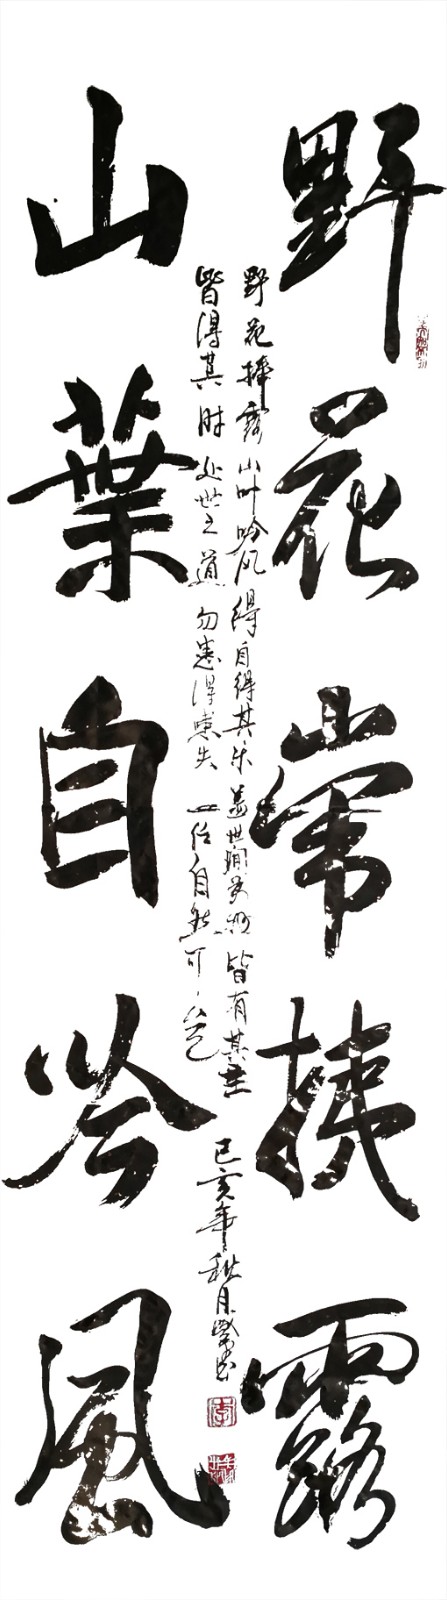 野花常捧露
山葉自吟風
野花捧露山叶吟风得自得其乐盖世间万物皆有其
皆得其时处世之道勿患得患失一任自然可
己亥年秋月